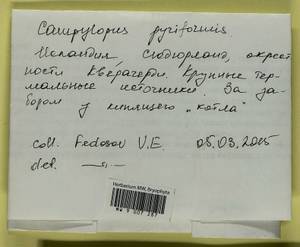 Campylopus pyriformis.
Исландия, Сюдюрланд, окрест
ности Кверагерди. Крупные тер-
мальные источники. За за-
бором у кипящего „котла"
coll. Fedosov V.E. 05.03.2015
det. —„—
Herbarium MW, Bryophyta